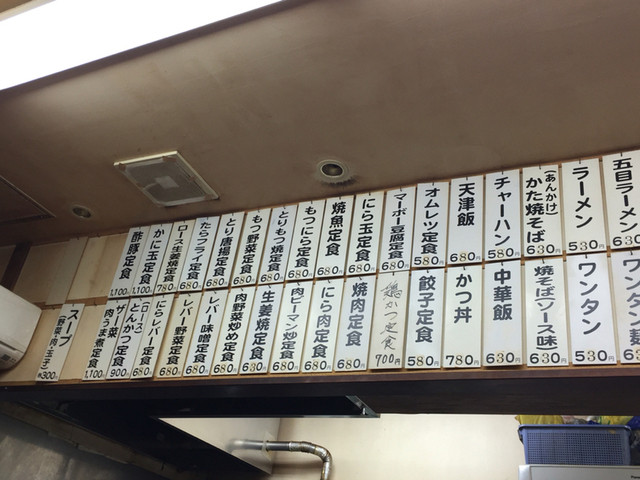 五目ラーメン 630円
ラーメン 530円
(あんかけ)かた焼そば 630円
チャーハン 580円
天津飯 680円
オムレツ定食 580円
マーボー豆腐定食 680円
にら玉定食 680円
焼魚定食 680円
もつにら定食 680円
とりもつ焼定食 680円
もつ野菜定食 680円
とり唐揚定食 680円
たらフライ定食 680円
ロース生姜焼定食 780円
かに玉定食 1,100円
酢豚定食 1,100円
ワンタン
ワンタン 530円
焼そばソース味 630円
中華飯 630円
かつ丼 780円
餃子定食 580円
鶏かつ定食 700円
焼肉定食 680円
にら肉定食 680円
肉ピーマン炒定食 680円
生姜焼定食 680円
肉野菜炒め定食 680円
レバー味噌定食 680円
レバー野菜定食 680円
にらレバー定食 680円
(ロース)とんかつ定食 900円
ザ・菜肉うま煮定食 1,100円
スープ(野菜・肉・玉子) ¥300円